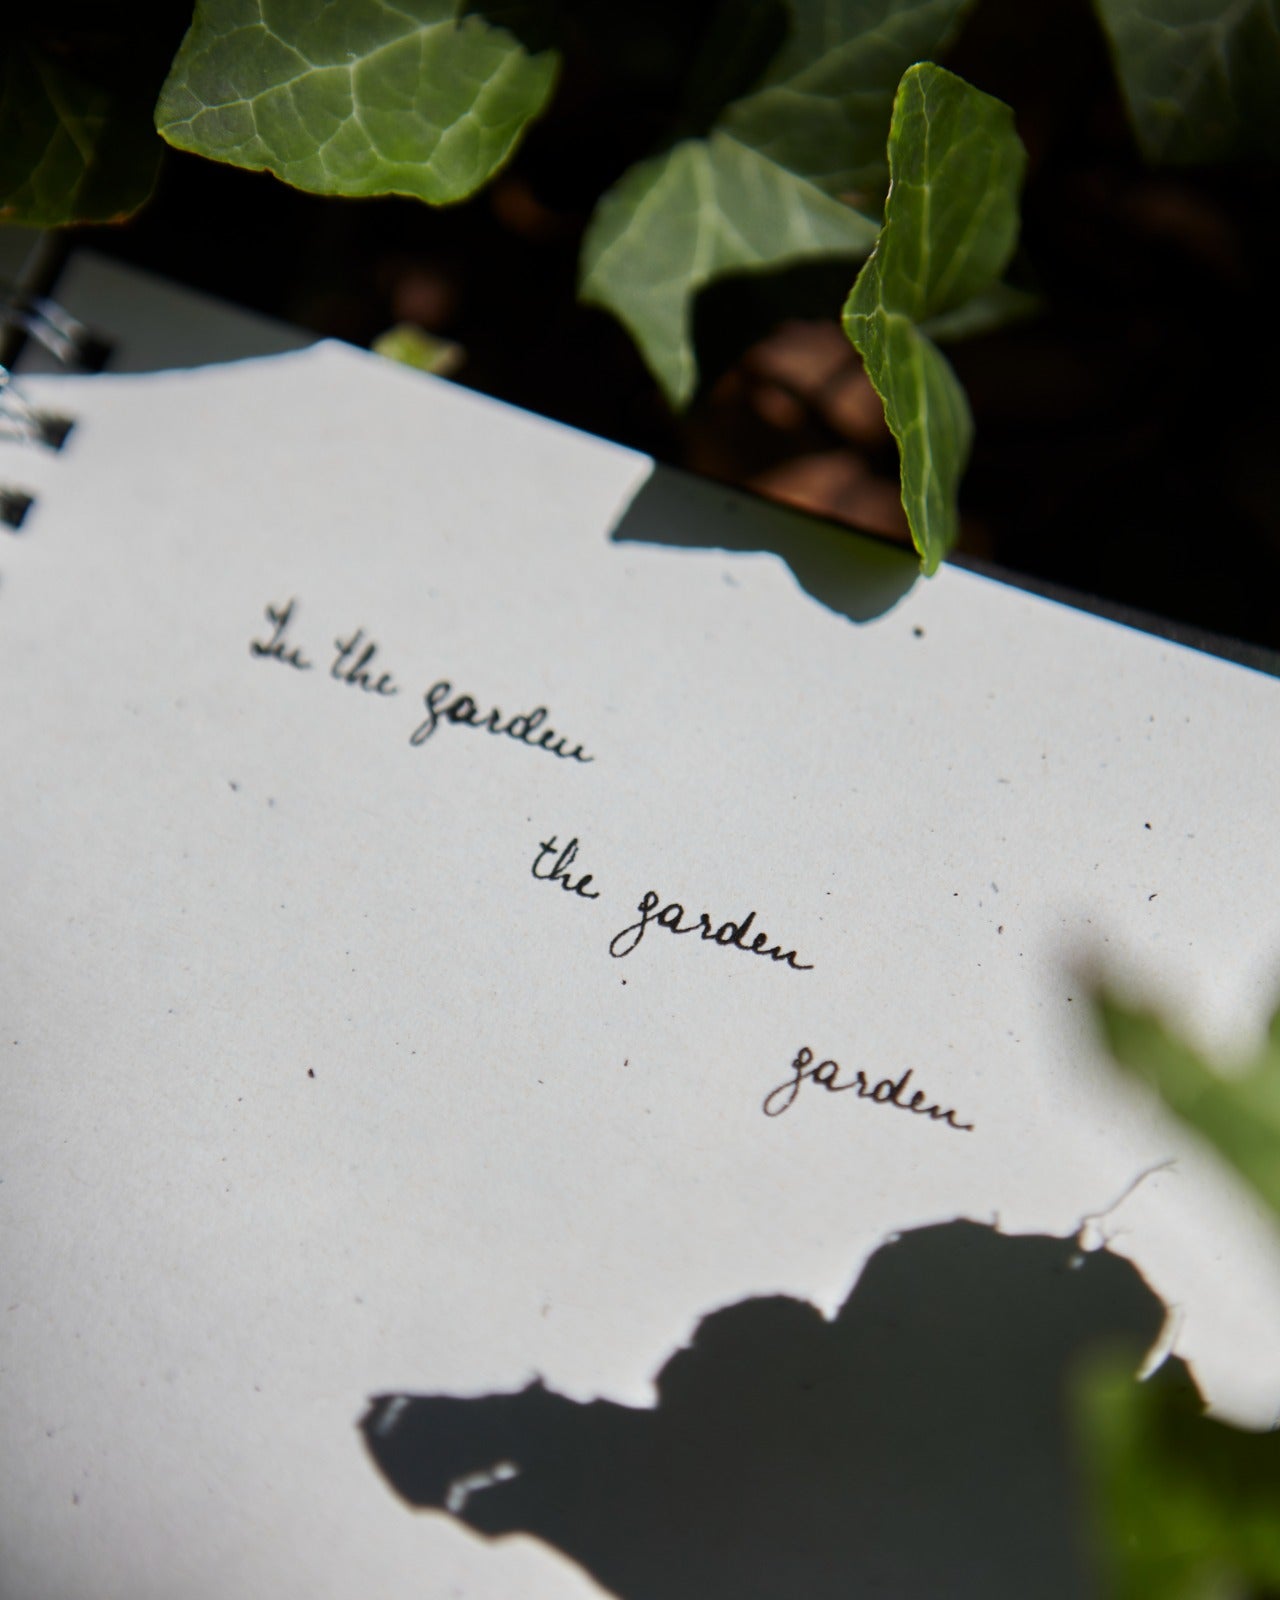 In the garden
the garden
garden